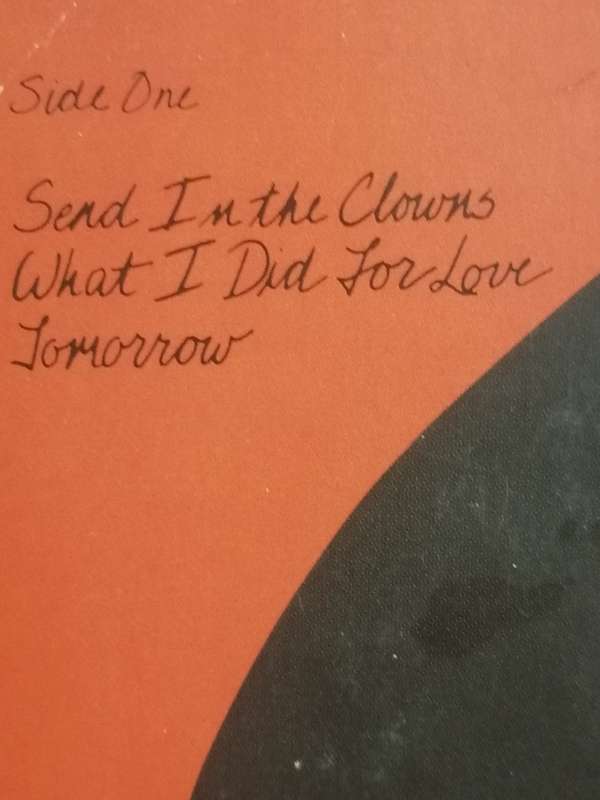 Side One
Send In the Clowns
What I Did For Love
Tomorrow